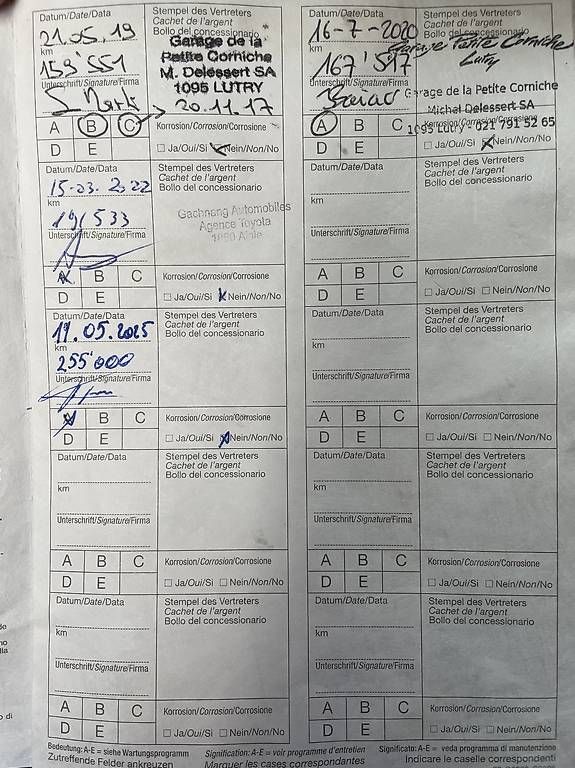 Datum/Date/Data
21.05.19
km
159'551
Unterschrift/Signature/Firma
Stempel des Vertreters
Cachet de l'argent
Bollo del concessionario
Garage de la
Petite Corniche
M. Delessert SA
1095 LUTRY
20.11.17
A B C
D E
Korrosion/Corrosion/Corrosione
Ja/Oui/Si Nein/Non/No
Datum/Date/Data
16-7-2020
km
167'517
Unterschrift/Signature/Firma
Stempel des Vertreters
Cachet de l'argent
Bollo del concessionario
Garage Petite Corniche
Lutry
Garage de la Petite Corniche
Michel Delessert SA
1095 Lutry - 021 791 52 65
A B C
D E
Korrosion/Corrosion/Corrosione
Ja/Oui/Si Nein/Non/No
Datum/Date/Data
15-03.2022
km
191'533
Unterschrift/Signature/Firma
Stempel des Vertreters
Cachet de l'argent
Bollo del concessionario
Gachnang Automobiles
Agence Toyota
1860 Aigle
A B C
D E
Korrosion/Corrosion/Corrosione
Ja/Oui/Si Nein/Non/No
Datum/Date/Data
km
Unterschrift/Signature/Firma
Stempel des Vertreters
Cachet de l'argent
Bollo del concessionario
A B C
D E
Korrosion/Corrosion/Corrosione
Ja/Oui/Si Nein/Non/No
Datum/Date/Data
19.05.2025
km
255'000
Unterschrift/Signature/Firma
Stempel des Vertreters
Cachet de l'argent
Bollo del concessionario
A B C
D E
Korrosion/Corrosion/Corrosione
Ja/Oui/Si Nein/Non/No
Datum/Date/Data
km
Unterschrift/Signature/Firma
Stempel des Vertreters
Cachet de l'argent
Bollo del concessionario
A B C
D E
Korrosion/Corrosion/Corrosione
Ja/Oui/Si Nein/Non/No
Datum/Date/Data
km
Unterschrift/Signature/Firma
Stempel des Vertreters
Cachet de l'argent
Bollo del concessionario
A B C
D E
Korrosion/Corrosion/Corrosione
Ja/Oui/Si Nein/Non/No
Datum/Date/Data
km
Unterschrift/Signature/Firma
Stempel des Vertreters
Cachet de l'argent
Bollo del concessionario
A B C
D E
Korrosion/Corrosion/Corrosione
Ja/Oui/Si Nein/Non/No
Datum/Date/Data
km
Unterschrift/Signature/Firma
Stempel des Vertreters
Cachet de l'argent
Bollo del concessionario
A B C
D E
Korrosion/Corrosion/Corrosione
Ja/Oui/Si Nein/Non/No
Datum/Date/Data
km
Unterschrift/Signature/Firma
Stempel des Vertreters
Cachet de l'argent
Bollo del concessionario
A B C
D E
Korrosion/Corrosion/Corrosione
Ja/Oui/Si Nein/Non/No
Bedeutung: A-E = siehe Wartungsprogramm
Zutreffende Felder ankreuzen
Signification: A-E = voir programme d'entretien
Marquer les cases correspondantes
Significato: A-E = veda programma di manutenzione
Indicare le caselle corrispondenti